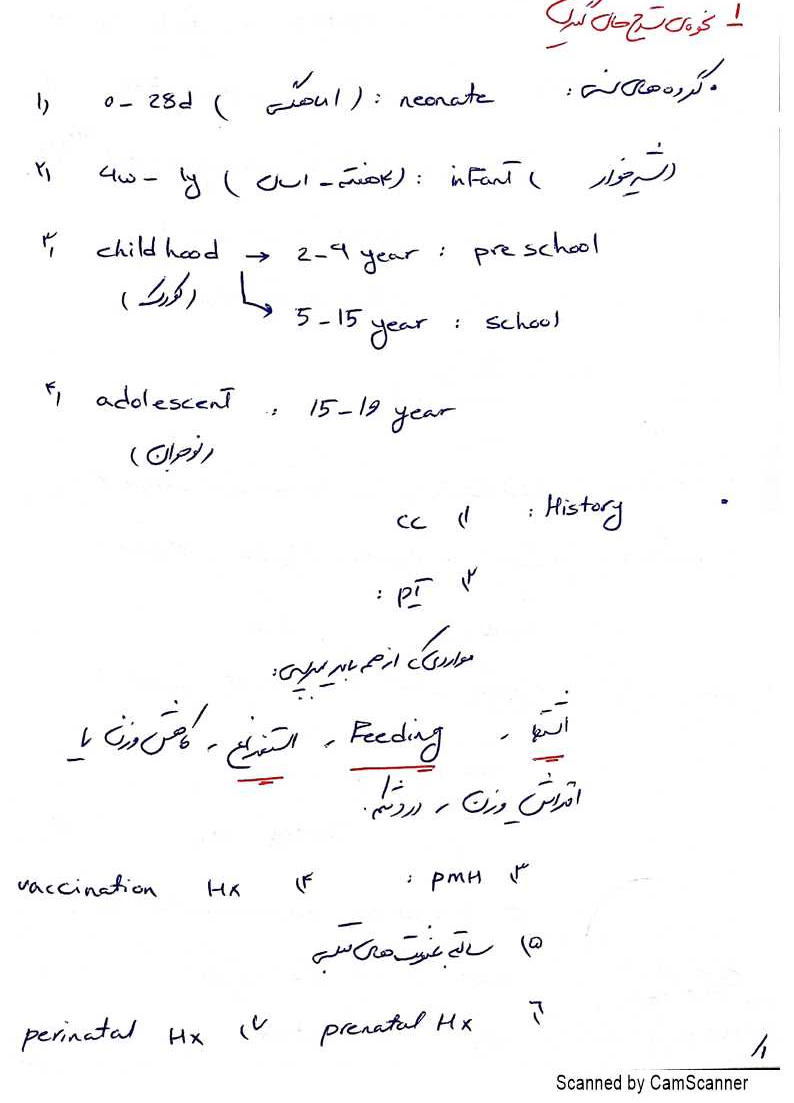 1 نحوه‌ی شرح حال گیری
• گروه‌های سنی :
۱) 0 – 28d ( تا ۱ ماهگی ) : neonate
۲) 4w – 1y ( ۴ هفته – ۱ سال ) : infant ( شیرخوار )
۳) childhood → 2-4 year : pre school
( کودک )
5-15 year : school
۴) adolescent : 15-19 year
( نوجوان )
• History : ۱) cc
۲) PI :
مواردی که از همه باید بپرسیم:
اشتها ، Feeding ، استفراغ ، کاهش وزن یا
افزایش وزن ، درد شکم.
۳) PMH : ۴) vaccination Hx
۵) سابقه عفونت‌های قبلی
۶) prenatal Hx ۷) perinatal Hx
۱
Scanned by CamScanner